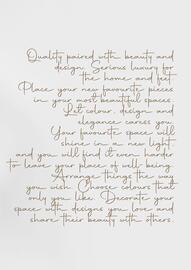 Quality paired with beauty and
design. Serious luxury for
the home and feet.
Place your new favourite pieces
in your most beautiful spaces.
Let colour, design and
elegance caress you.
Your favourite space will
shine in a new light
and you will find it even harder
to leave your place of well-being.
Arrange things the way
you wish. Choose colours that
only you like. Decorate your
space with designs you love and
share their beauty with others.